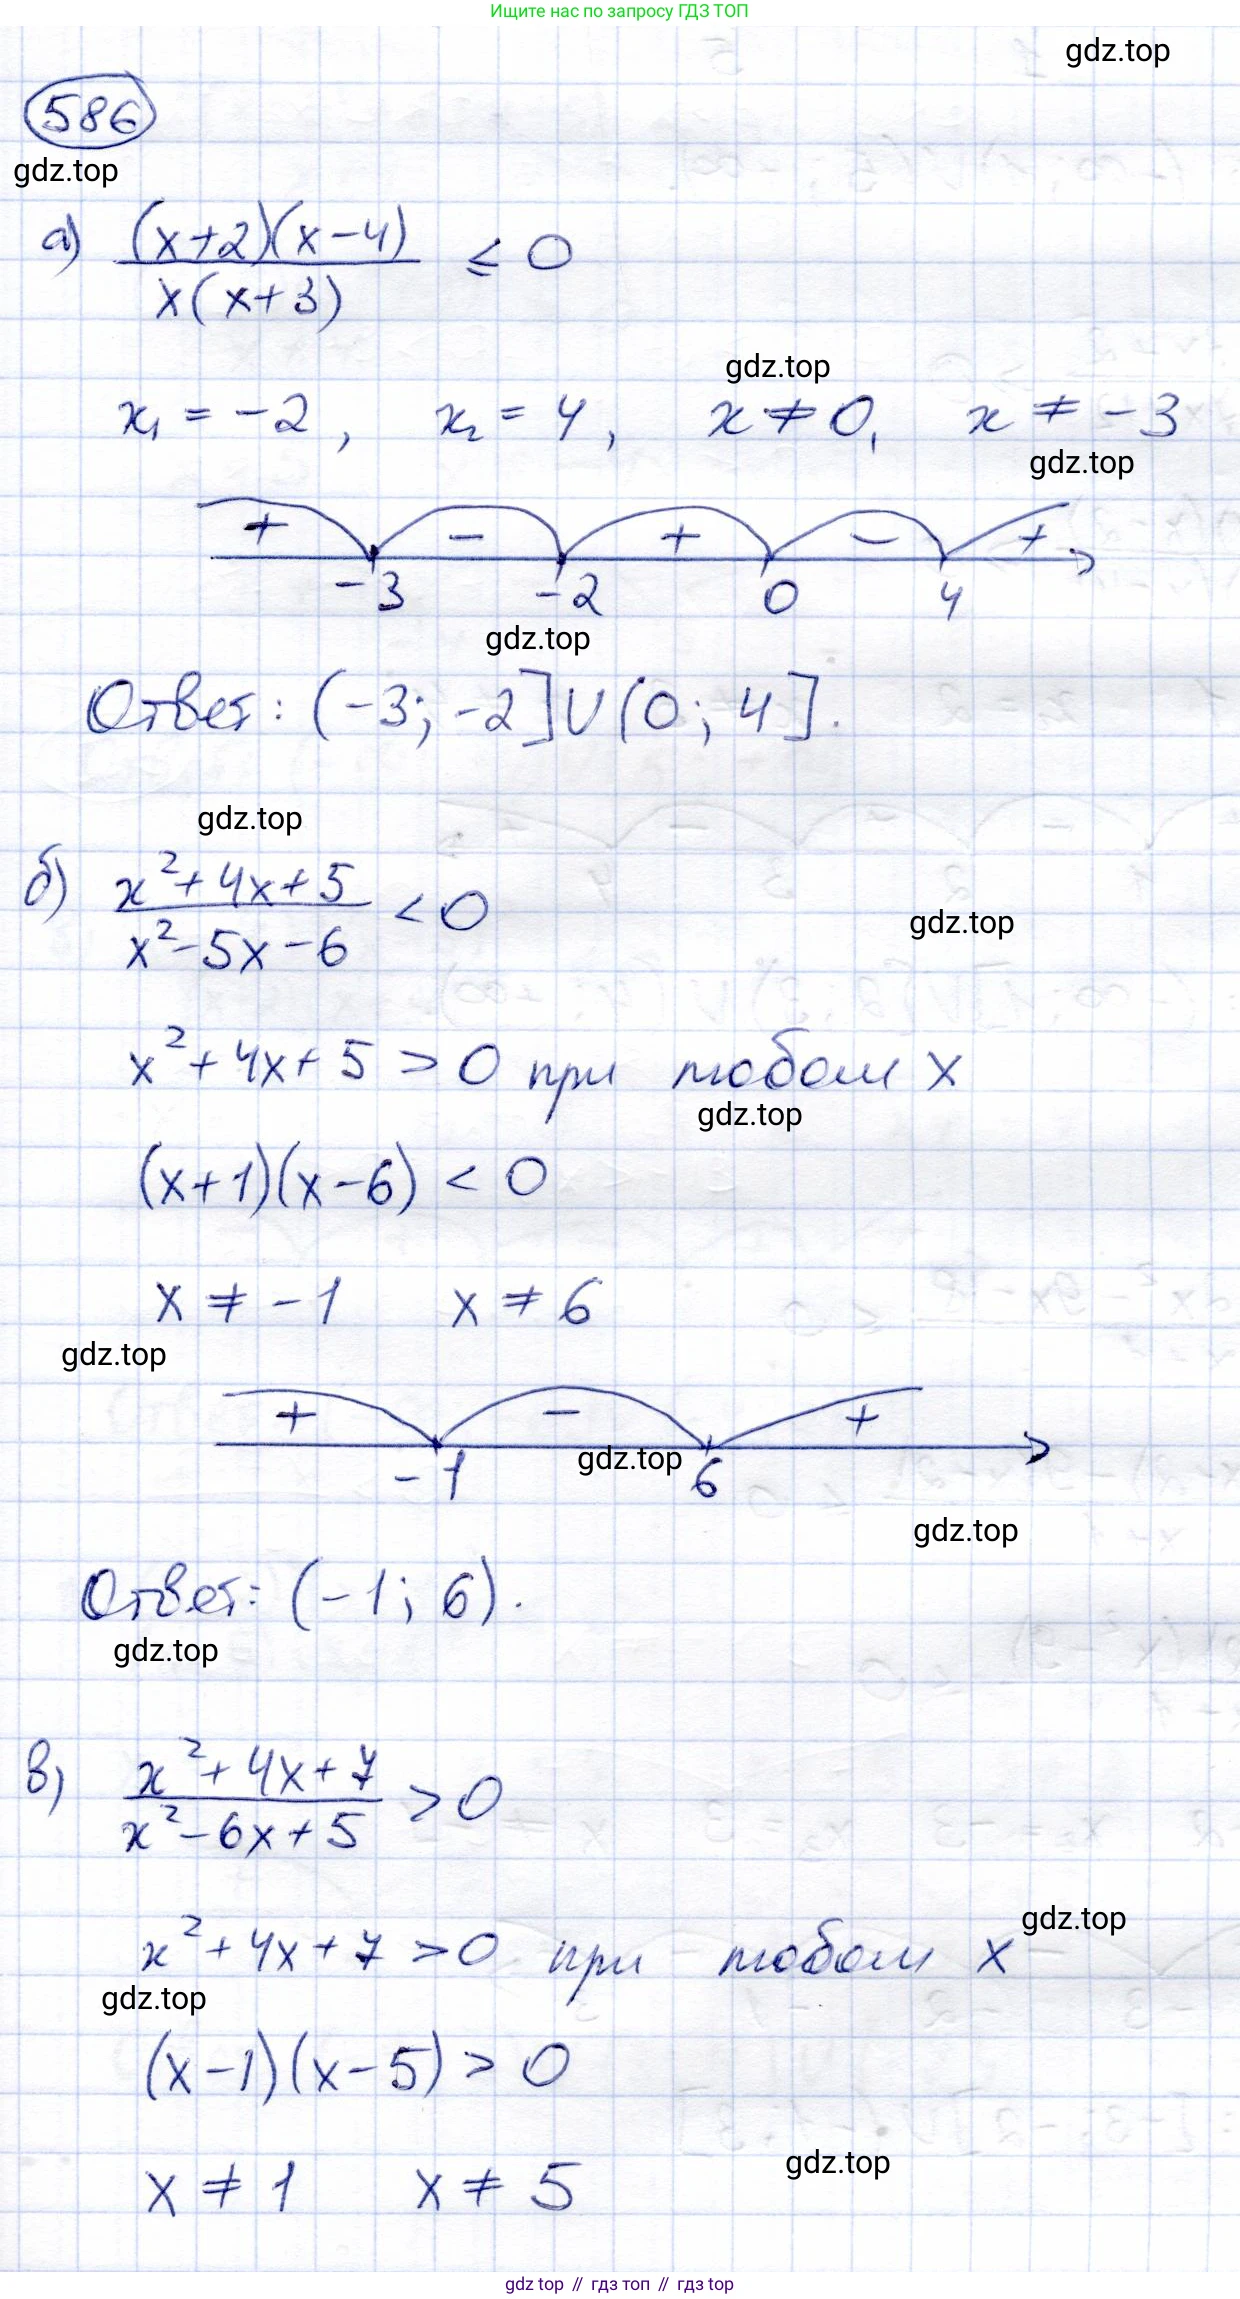 Ищите нас по запросу ГДЗ ТОП
gdz.top
586
gdz.top
а) (x+2)(x-4) / x(x+3) ≤ 0
gdz.top
x₁ = -2, x₂ = 4, x ≠ 0, x ≠ -3
gdz.top
+ - + - +
-3 -2 0 4
gdz.top
Ответ: (-3; -2]∪(0; 4].
gdz.top
б) x²+4x+5 / x²-5x-6 < 0
gdz.top
x²+4x+5 > 0 при любом x
gdz.top
(x+1)(x-6) < 0
x ≠ -1 x ≠ 6
gdz.top
+ - +
gdz.top
-1 6
gdz.top
Ответ: (-1; 6).
gdz.top
в) x²+4x+7 / x²-6x+5 > 0
gdz.top
x²+4x+7 > 0 при любом x
gdz.top
(x-1)(x-5) > 0
gdz.top
x ≠ 1 x ≠ 5
gdz top // гдз топ // гдз top